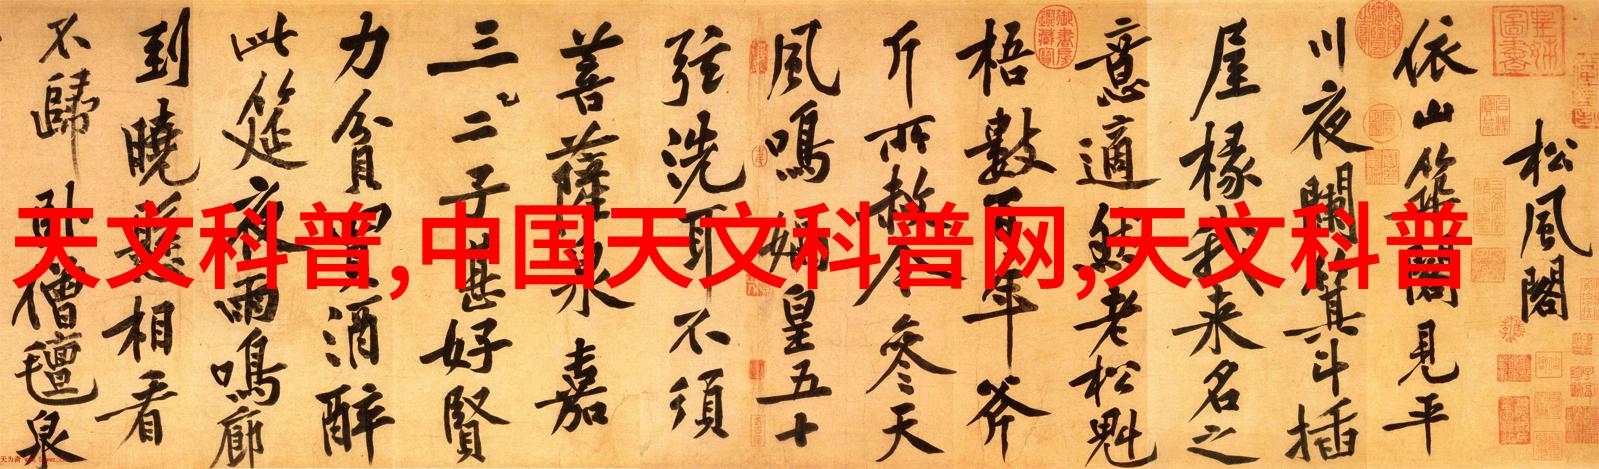 松風閣
依山築閣見平
川夜闌箕斗插
屋椽我来名之
意適然老松魁
梧數百年斧
斤所赦今参天
風鳴媧皇五十
弦洗耳不須
菩薩泉嘉
三二子甚好賢
力貧買酒醉
此筵夜雨鳴廊
到曉懸相看
不歸卧僧氈泉
天文科普,中国天文科普网,天文科普